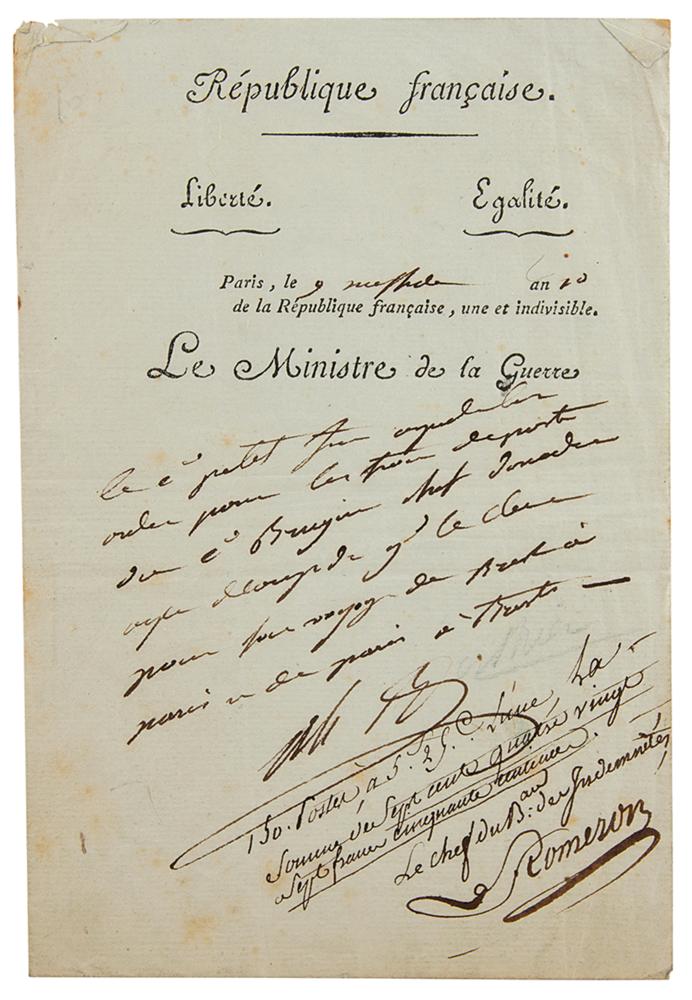 République française.
Liberté. Egalité.
Paris, le 9 messidor an 10
de la République française, une et indivisible.
Le Ministre de la Guerre
le cen petet fera expedier
ordre pour les frais de poste
du cen chef
aupres du gal le clerc
pour son voyage de Brest à
paris et de paris à Brest —
150. Postes, à 5.f 25.c l'une, La
Somme de Sept cents quatre vingt
Sept francs cinquante centimes.
Le chef du B.au des Indemnités,
Romeron